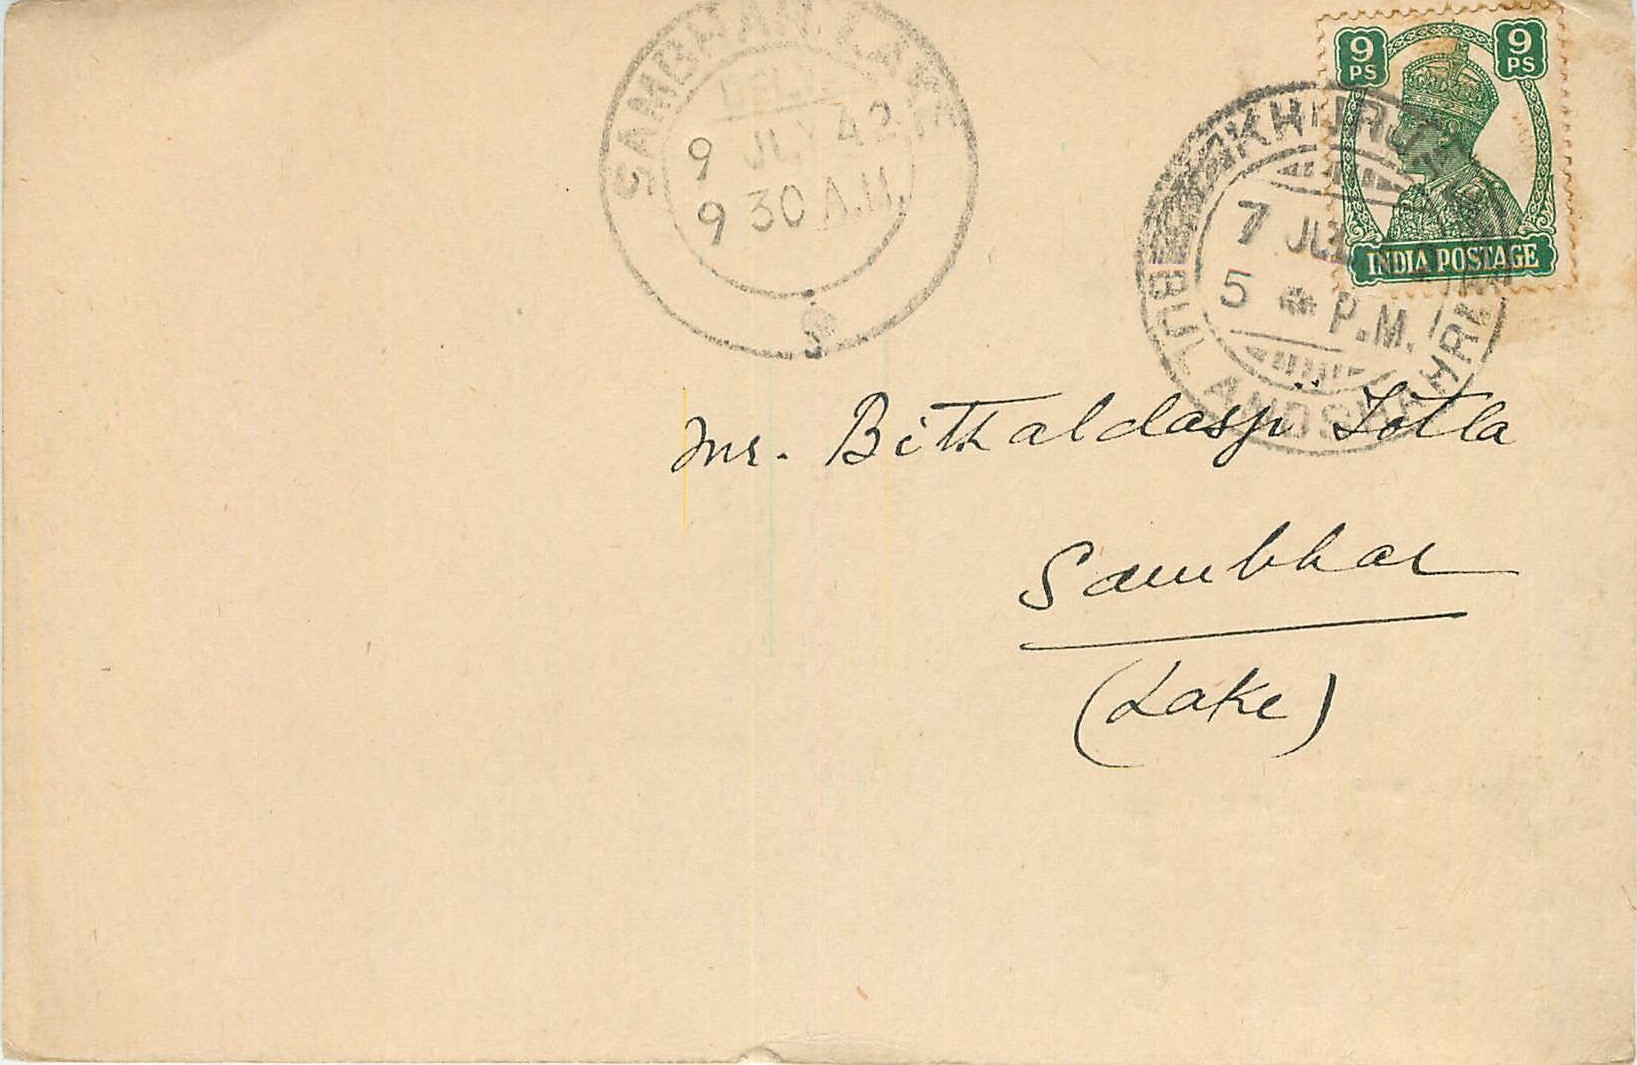 SAMBHAR LAKE
DELY
9 JLY 42
9 30 A.M.
9 PS
9 PS
INDIA POSTAGE
7 JUL
5 P.M.
BULANDSHAHR
Mr. Bithaldasji Totla
Sambhar
(Lake)